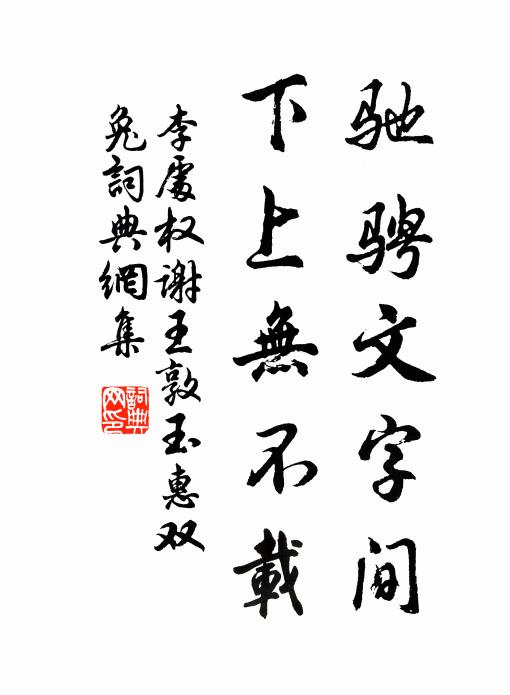 驰骋文字间
下上無不載
李處权谢王敦玉惠双
兔詞典網集
詞典
网印